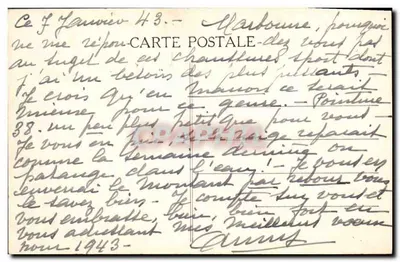 Ce 7 Janvier 43. - Narbonne, pourquoi
ne me répon-
CARTE POSTALE
-dez vous pas
au sujet de ces chaussures sport dont
j'ai un besoin des plus pressants -
Je crois qu'en marron ce serait
mieux pour ce genre. - Pointure
38. un peu plus petit que pour vous -
Je vous en prie,
comme la semaine dernière on
patauge dans l'eau! - Je vous en
enverrai le montant par retour vous
le savez bien - Je compte sur vous et
vous embrasse, bien, bien fort en
vous adressant mes meilleurs voeux
pour 1943 -